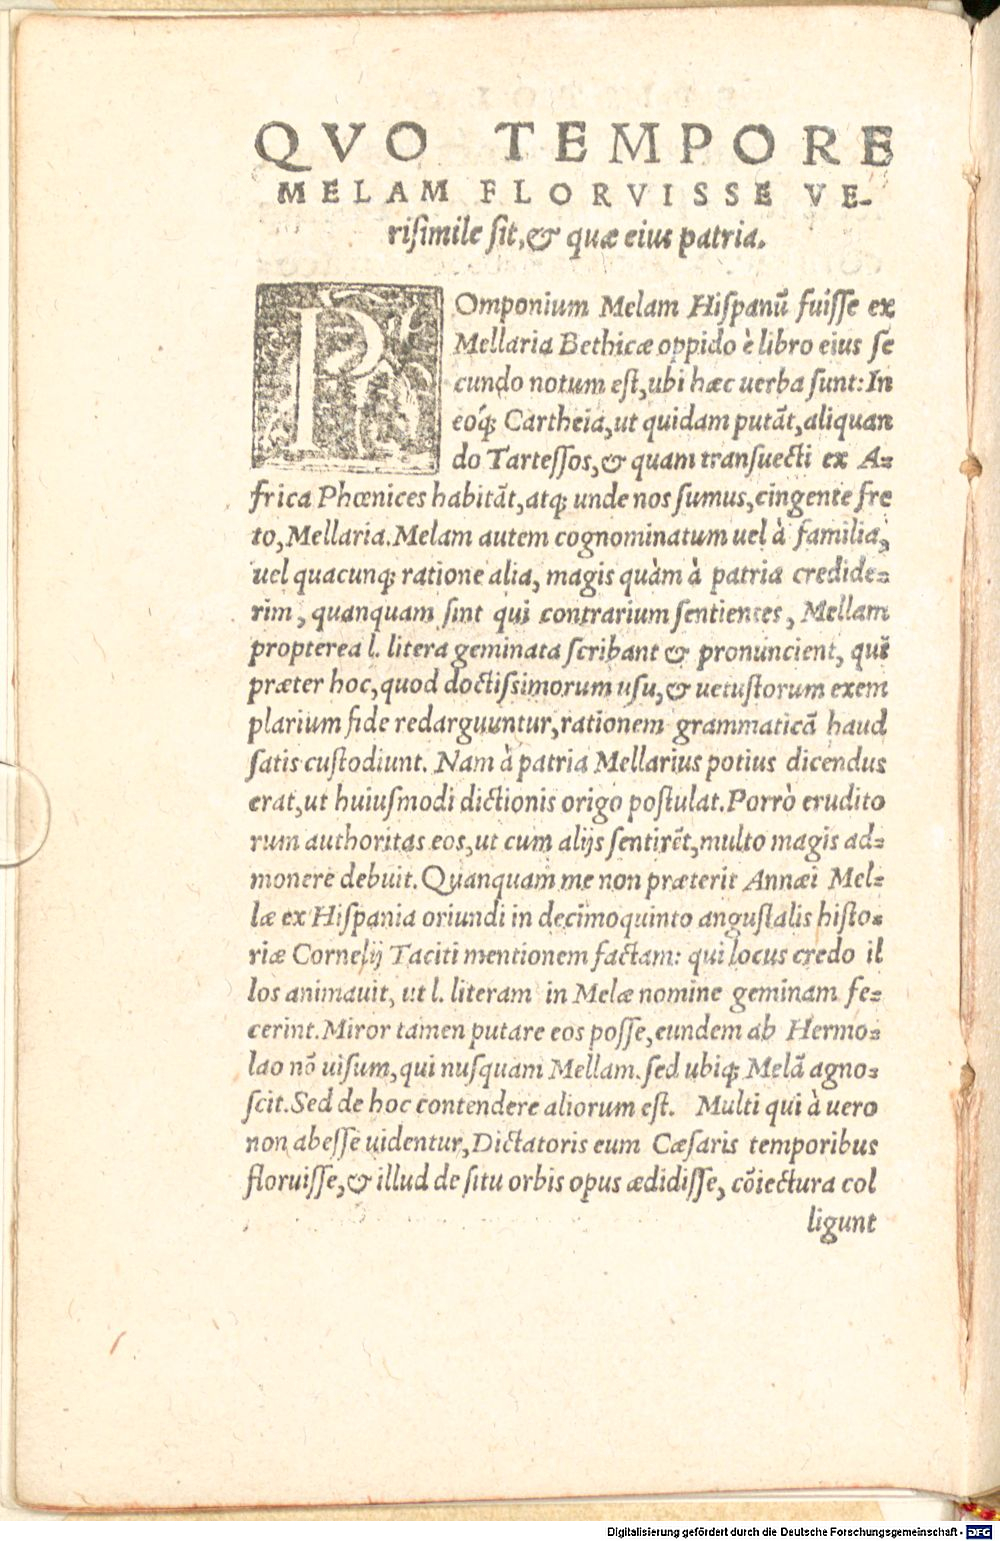 QVO TEMPORE
MELAM FLORVISSE VE-
risimile sit, & quæ eius patria.
POmponium Melam Hispanũ fuisse ex
Mellaria Bethicæ oppido è libro eius se
cundo notum est, ubi hæc uerba sunt: In
eoq́; Cartheia, ut quidam putãt, aliquan
do Tartessos, & quam transuecti ex A-
frica Phœnices habitãt, atq; unde nos sumus, cingente fre
to, Mellaria. Melam autem cognominatum uel à familia,
uel quacunq; ratione alia, magis quàm à patria credide-
rim, quanquam sint qui contrarium sentientes, Mellam
propterea l. litera geminata scribant & pronuncient, qui
præter hoc, quod doctissimorum usu, & uetustorum exem
plarium fide redarguuntur, rationem grammaticã haud
satis custodiunt. Nam à patria Mellarius potius dicendus
erat, ut huiusmodi dictionis origo postulat. Porrò erudito
rum authoritas eos, ut cum alijs sentirẽt, multo magis ad-
monere debuit. Quanquam me non præterit Annæi Mel-
læ ex Hispania oriundi in decimoquinto angustalis histo-
riæ Cornelij Taciti mentionem factam: qui locus credo il
los animauit, ut l. literam in Melæ nomine geminam fe-
cerint. Miror tamen putare eos posse, eundem ab Hermo-
lao nõ uisum, qui nusquam Mellam. sed ubiq; Melã agno-
scit. Sed de hoc contendere aliorum est. Multi qui à uero
non abesse uidentur, Dictatoris eum Cæsaris temporibus
floruisse, & illud de situ orbis opus ædidisse, cõiectura col
ligunt
Digitalisierung gefördert durch die Deutsche Forschungsgemeinschaft - DFG